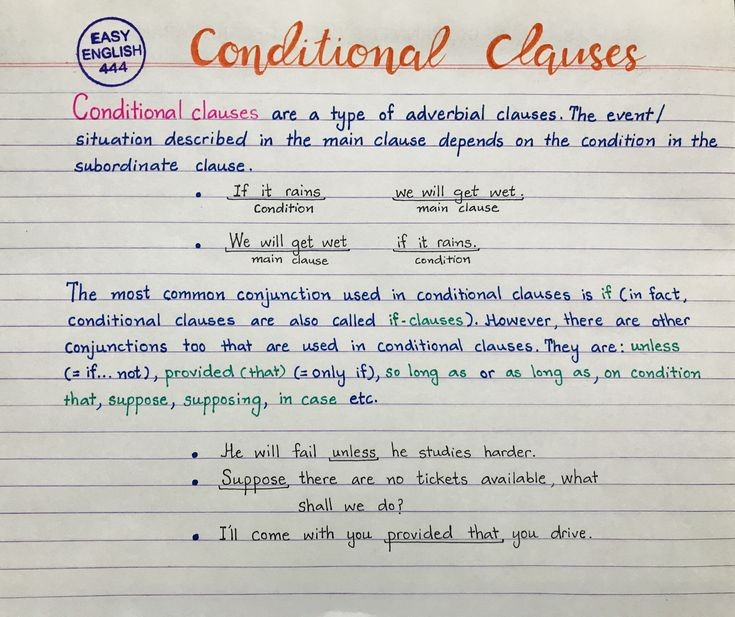 EASY
ENGLISH
444
Conditional Clauses
Conditional clauses are a type of adverbial clauses. The event/
situation described in the main clause depends on the condition in the
subordinate clause.
• If it rains we will get wet.
Condition main clause
• We will get wet if it rains.
main clause condition
The most common conjunction used in conditional clauses is if (in fact,
conditional clauses are also called if-clauses). However, there are other
conjunctions too that are used in conditional clauses. They are: unless
(= if... not), provided (that) (= only if), so long as or as long as, on condition
that, suppose, supposing, in case etc.
• He will fail unless he studies harder.
• Suppose there are no tickets available, what
shall we do?
• I'll come with you provided that you drive.